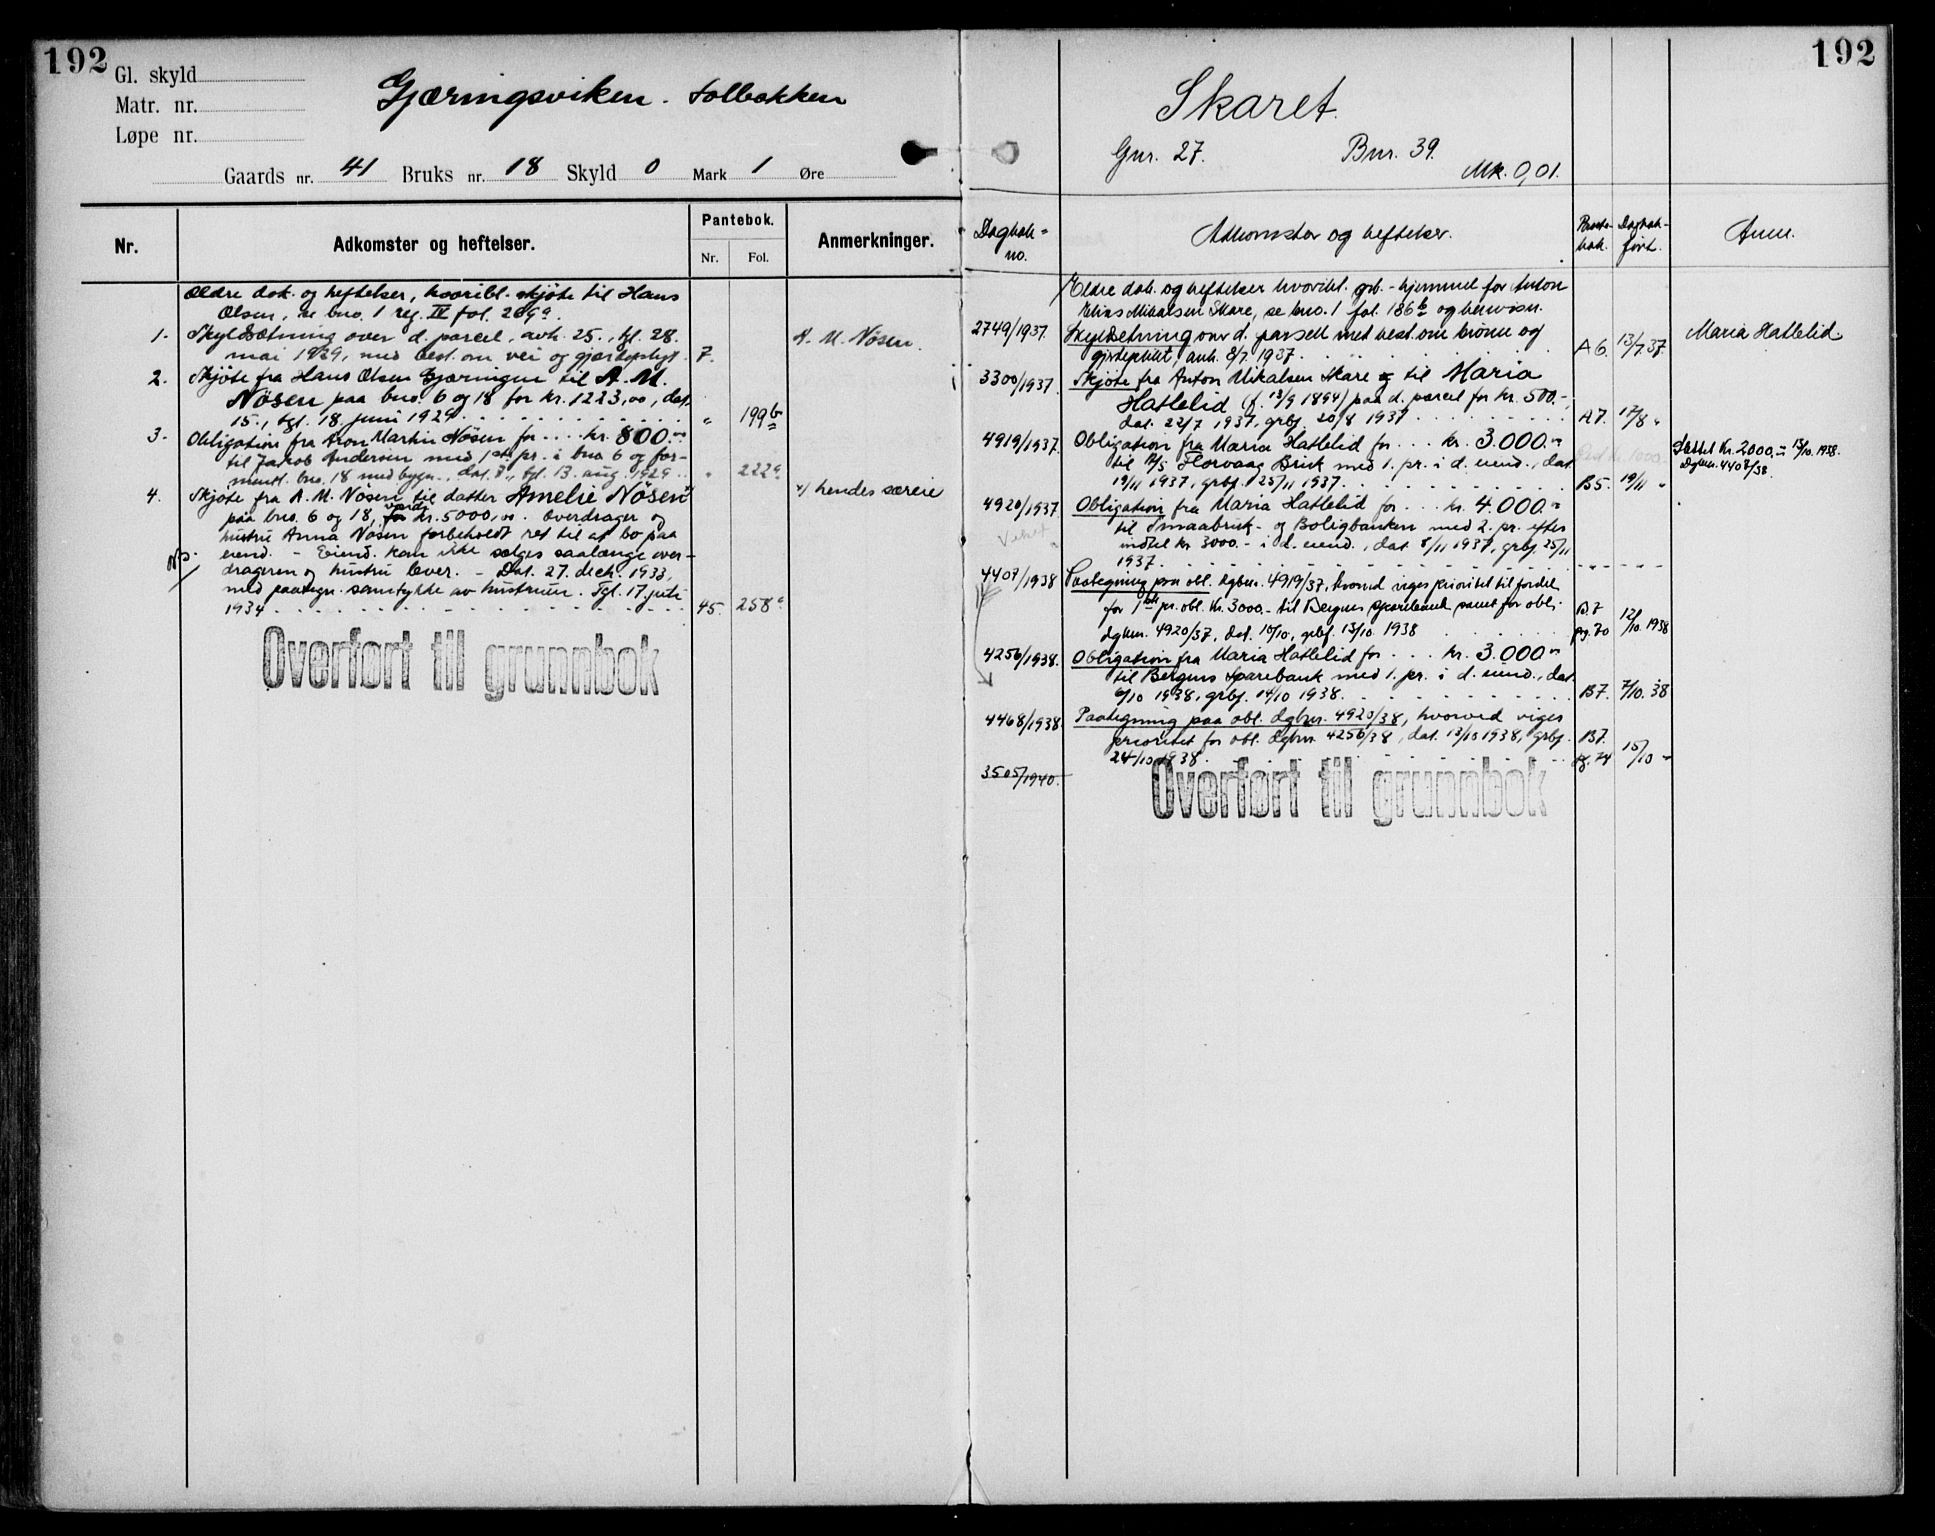 192
Gl. skyld
Matr. nr.
Løpe nr.
Gjæringsviken. Solbakken
Gaards nr. 41 Bruks nr. 18 Skyld 0 Mark 1 Øre
Nr. Adkomster og heftelser. Pantebok. Anmerkninger.
Nr. Fol.
Ældre dok. og heftelser, hvoribl. skjøte til Hans
Olsen, se bno. 1 reg. IV fol.
1. Skyldsætning over d. parcel, avh. 25., tgl. 28.
mai 1929, med best. om vei og gjærdeplygt. 7. A. M. Nøsen.
2. Skjøte fra Hans Olsen Gjæringen til A. M.
Nøsen paa bno. 6 og 18 for kr. 1223,00, dat.
15., tgl. 18 juni 1929 " 199b
3. Obligation fra Aron Martin Nøsen for kr. 800.-
til Jakob Andersen med 1ste pr. i bno 6 og for-
mentl. bno. 18 med bygn., dat. 7., tgl. 13. aug. 1929 " 222a
4. Skjøte fra A. M. Nøsen til datter Amelie Nøsen x)
x) hendes særeie
paa bno. 6 og 18, for værdi kr. 5000,00. Overdrager og
hustru Anna Nøsen forbeholdt ret til at bo paa
eiend. - Eiend. kan ikke sælges saalænge over-
drageren og hustru lever. - Dat. 27. decb. 1933,
med paategn. samtykke av hustruen. Tgl. 17. juli
1934 45. 258a
Overført til grunnbok
192
Skaret.
Gnr. 27. Bnr. 39.
Mk. 0,01.
Dagbok- no. Adkomster og heftelser. Pante- bok. Dagbok- ført. Anm.
Eldre dok. og heftelser hvoribl. grb.-hjemmel for Anton
Elias Mikalsen Skare, se bno. 1 fol. 186b og henvisn.
2749/1937. Skyldsetning over d. parsell med best. om brønn og
gjerdeplikt, avh. 8/7 1937. A6. 13/7 37. Maria Hatlelid
3300/1937. Skjøte fra Anton Mikalsen Skare til Maria
Hatlelid (f. 13/9 1894) paa d. parcel for kr. 500.-,
dat. 22/7 1937, grbf. 20/8 1937 A7. 17/8 "
4919/1937. Obligation fra Maria Hatlelid for kr. 3.000.-
til A/S Florvaag Bruk med 1. pr. i d. eiend., dat.
19/11 1937, grbf. 25/11 1937. B5. 19/11 "
Slettet kr. 2000.- 13/10. 1938.
Dgbnr. 4408/38.
4920/1937 Obligation fra Maria Hatlelid for kr. 4.000.-
til Smaabruk- og Boligbanken med 2. pr. efter
indtil kr 3000.- i d. eiend., dat. 8/11 1937, grbf. 25/11
1937.
4407/1938 Paategning paa obl. dgbnr. 4919/37, hvorved viges prioritet til fordel
for 1ste pr. obl. kr. 3000.- til Bergens Sparebank samt for obl.
dgbnr. 4920/37, dat. 10/10, grbf. 13/10 1938 B.7 pg. 70 12/10. 1938
4256/1938. Obligation fra Maria Hatlelid for kr. 3.000.-
til Bergens Sparebank med 1. pr. i d. eiend., dat.
6/10 1938, grbf. 14/10 1938. B7. 7/10. 38
4468/1938 Paategning paa obl. dgbnr. 4920/38, hvorved viges
prioritet for obl. dgbnr 4256/38, dat. 13/10 1938, grbf.
24/10 1938. B7. pg. 74 15/10 "
3505/1940.
Overført til grunnbok